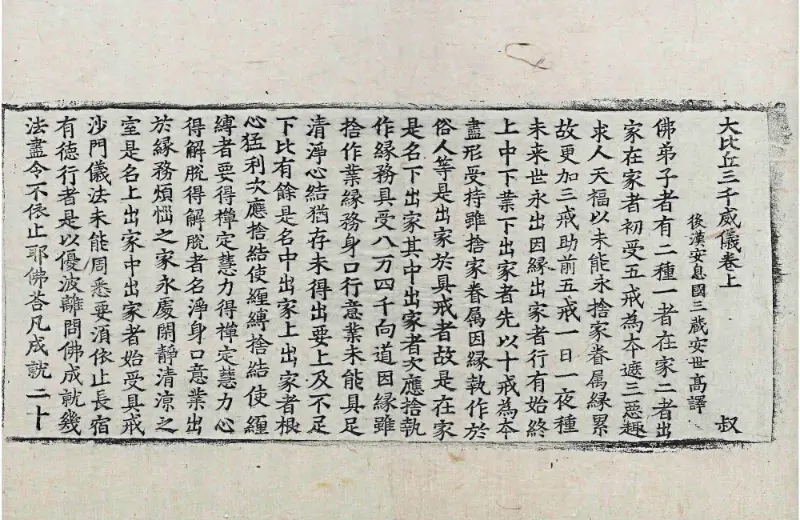 大比丘三千威儀卷上 叔
後漢安息國三藏安世高譯
佛弟子者有二種一者在家二者出
家在家者初受五戒為本遮三惡趣
求人天福以未能永捨家眷属縁累
故更加三戒助前五戒一日一夜種
未来世永出因縁出家者行有始終
上中下業下出家者先以十戒為本
盡形受持雖捨家眷属因縁執作於
俗人等是出家於具戒者故是在家
是名下出家其中出家者次應捨執
作縁務具受八万四千向道因縁雖
捨作業縁務身口行意業未能具足
清淨心結猶存未得出要上及不足
下比有餘是名中出家上出家者根
心猛利次應捨結使纏縛捨結使纏
縛者要得禪定慧力得禪定慧力心
得解脫得解脫者名淨身口意業出
於縁務煩惱之家永處閑靜清涼之
室是名上出家中出家者始受具戒
沙門儀法未能周悉要須依止長宿
有德行者是以優波離問佛成就幾
法盡令不依止耶佛荅凡成就二十